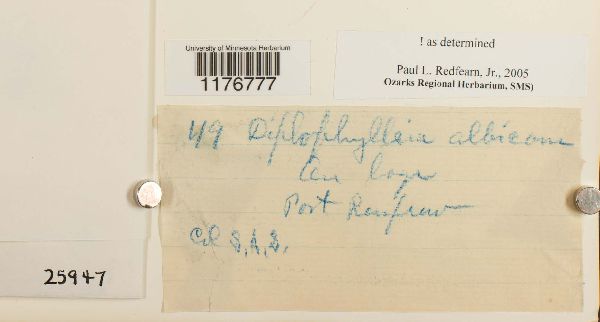 University of Minnesota Herbarium
1176777
! as determined
Paul L. Redfearn, Jr., 2005
Ozarks Regional Herbarium, SMS)
49 Diplophylleia albicans
On logs
Port Renfrew
Col S.A.S.
25947